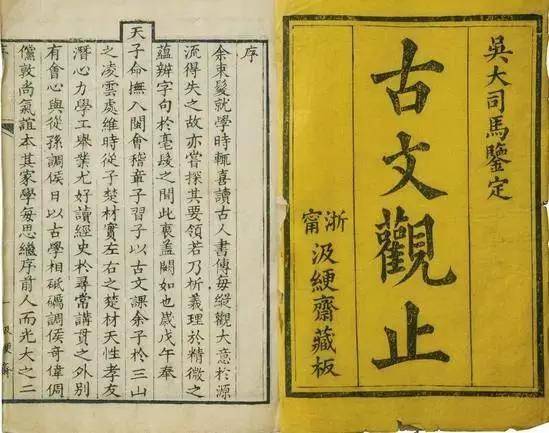 吳大司馬鑑定
古文觀止
浙甯
汲綆齋藏板
序
余束髮就學時輒喜讀古人書傳每縱觀大意於源
流得失之故亦嘗探其要領若乃析義理於精微之
蘊辨字句於毫髮之間此衷蓋闕如也歲戊午奉
天子命撫八閩會稽章子習子以古文課余子於三山
之凌雲處維時從子楚材實左右之楚材天性孝友
潛心力學工舉業尤好讀經史於尋常講貫之外別
有會心與從孫調侯日以古學相砥礪調侯奇偉倜
儻敦尚氣誼本其家學每思繼序前人而光大之二
一
汲綆齋